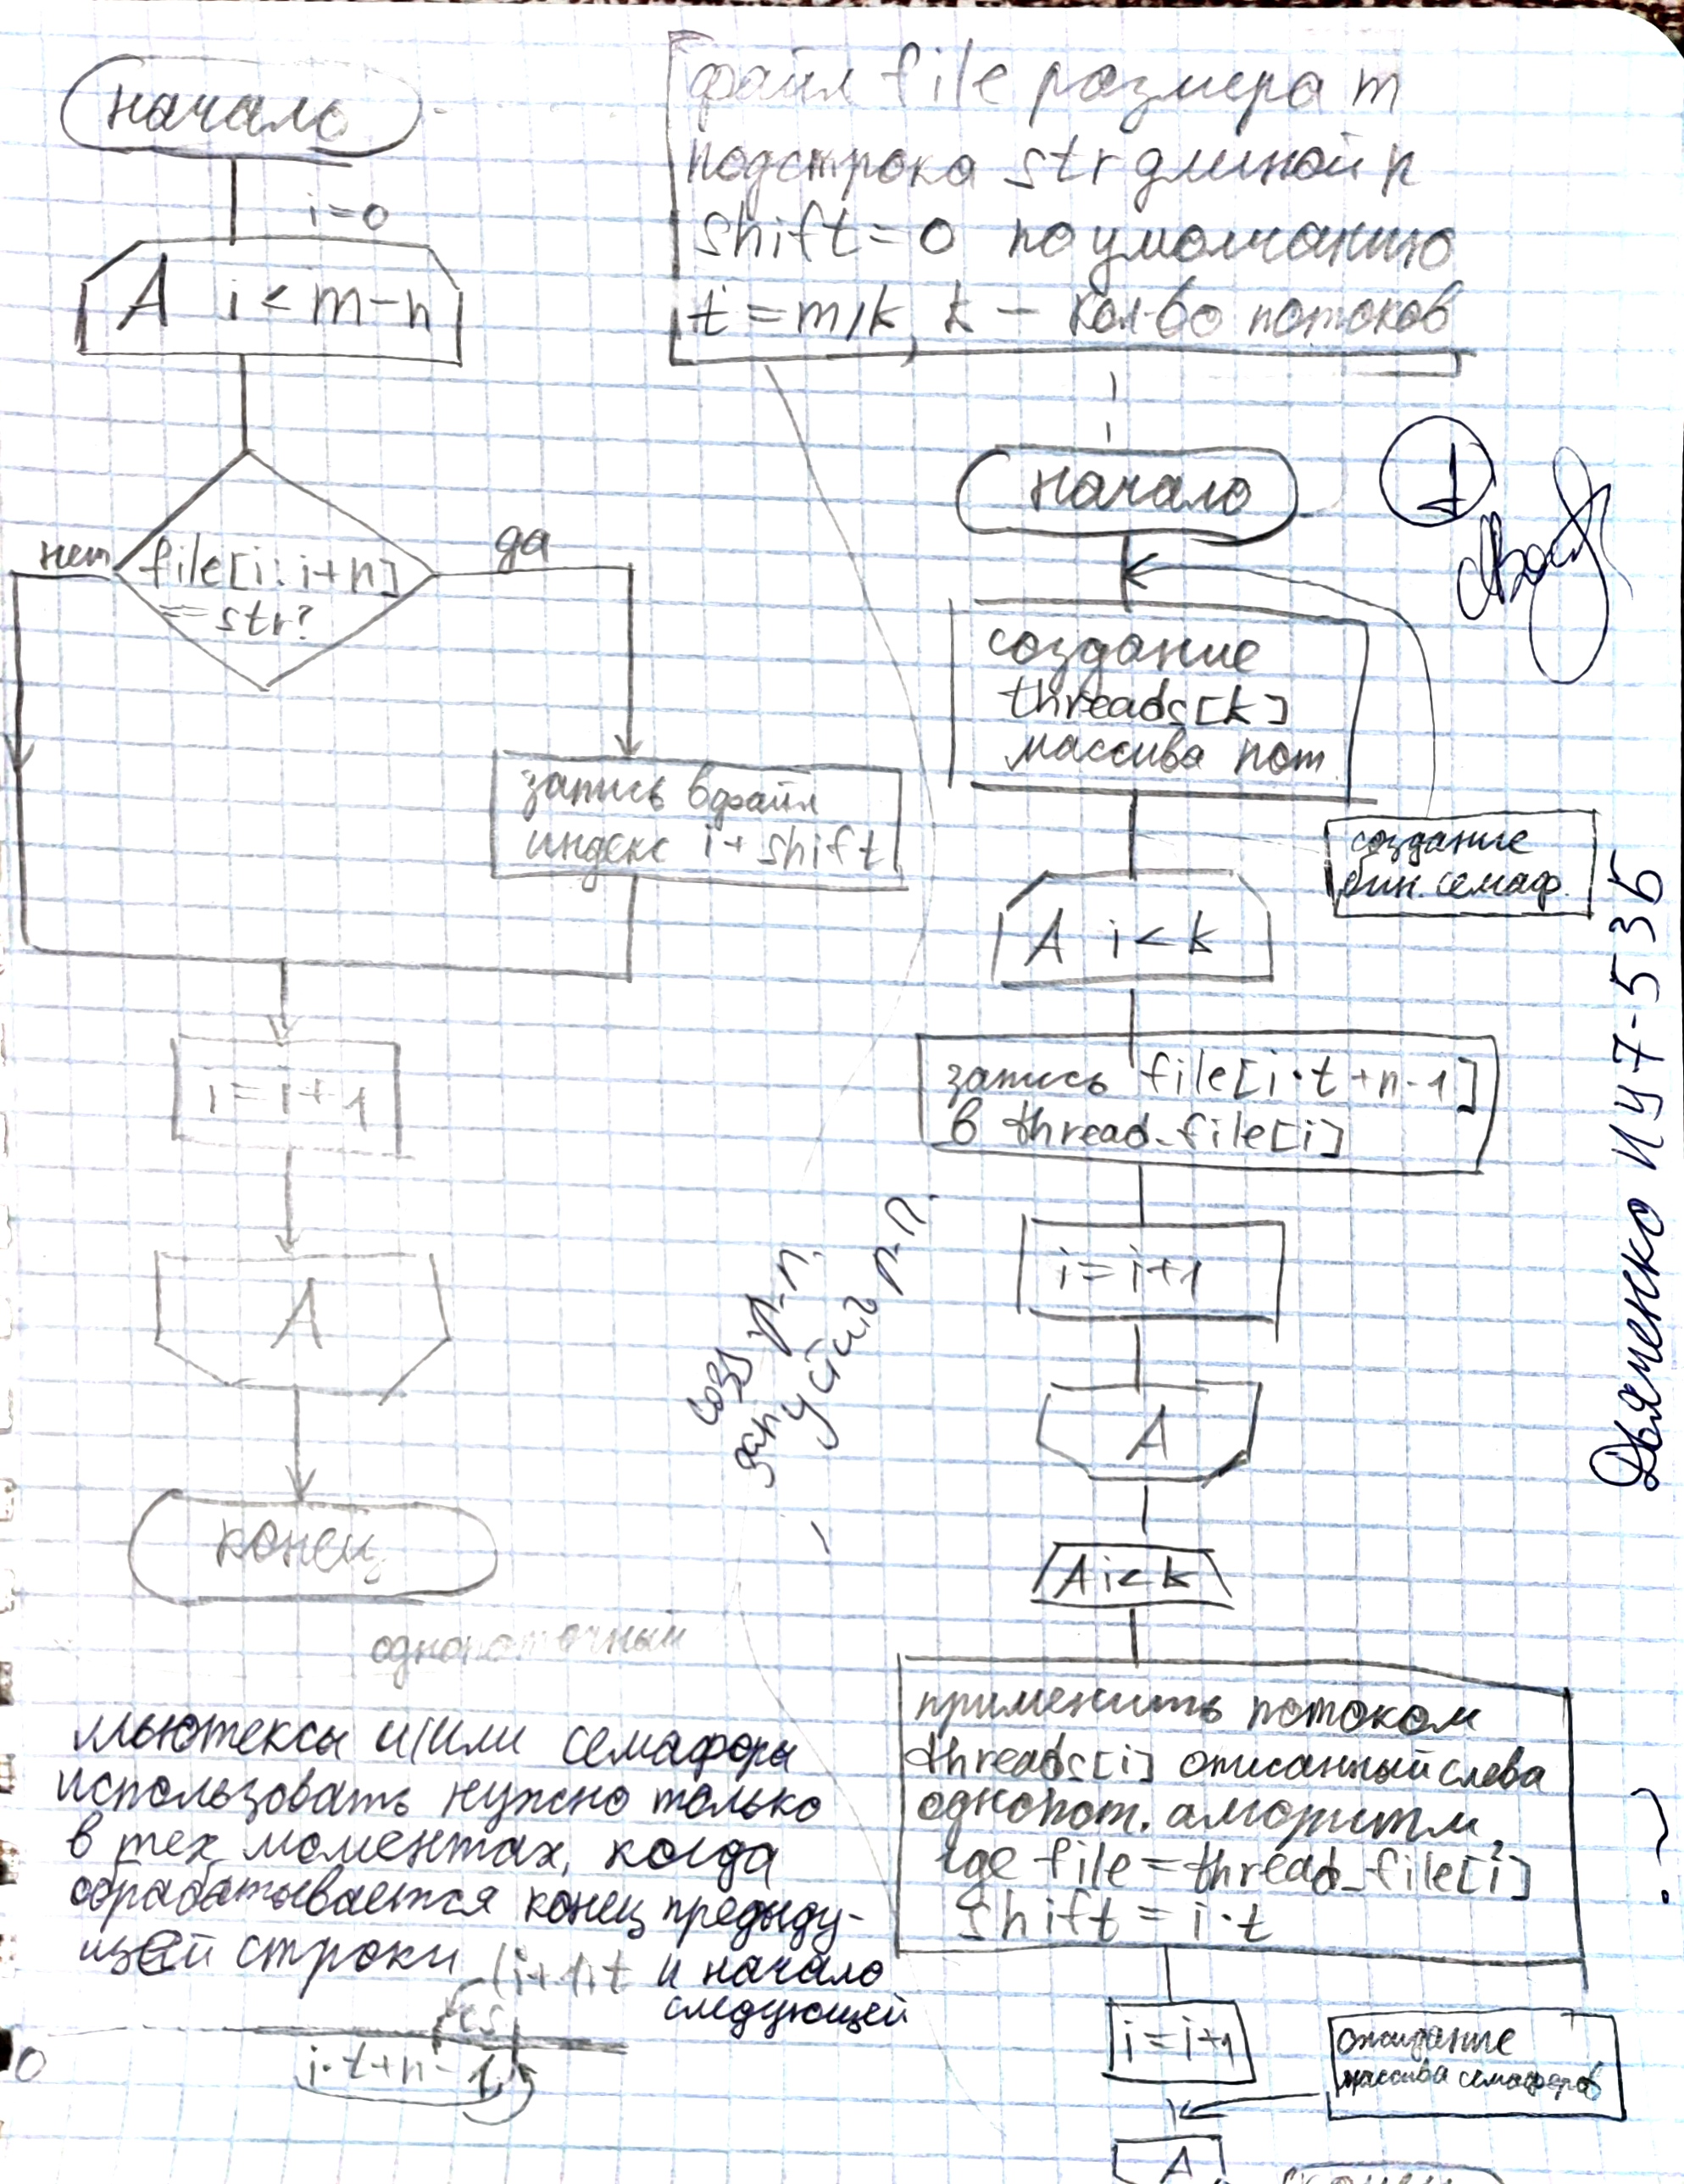 начало
i=0
A i < m-n
нет
file[i: i+n]
== str?
да
запись в файл
индекс i + shift
i = i+1
A
конец
однопоточный
мьютексы и/или семафоры
использовать нужно только
в тех моментах, когда
обрабатывается конец предыду-
щей строки (i+1)t и начало
следующей
0
i·t+n-1
файл file размера m
подстрока str длиной n
shift = 0 по умолчанию
t = m/k, k - кол-во потоков
начало
1
создание
threads[k]
массива пот.
создание
бин. семаф.
A i < k
запись file[i·t+n-1]
в thread_file[i]
i = i+1
A
A i < k
применить потоком
threads[i] описанный слева
однопот. алгоритм,
где file = thread_file[i]
shift = i·t
?
i = i+1
ожидание
массива семафоров
A
созд р.п.
зап
р.п.
Дьяченко ИУ7-53Б